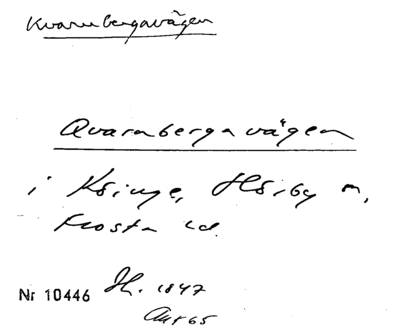 Kvarnbergavägen
Qvarnbergavägen
i Hörby
Frosta hd.
Nr 10446 1847
Akt 65